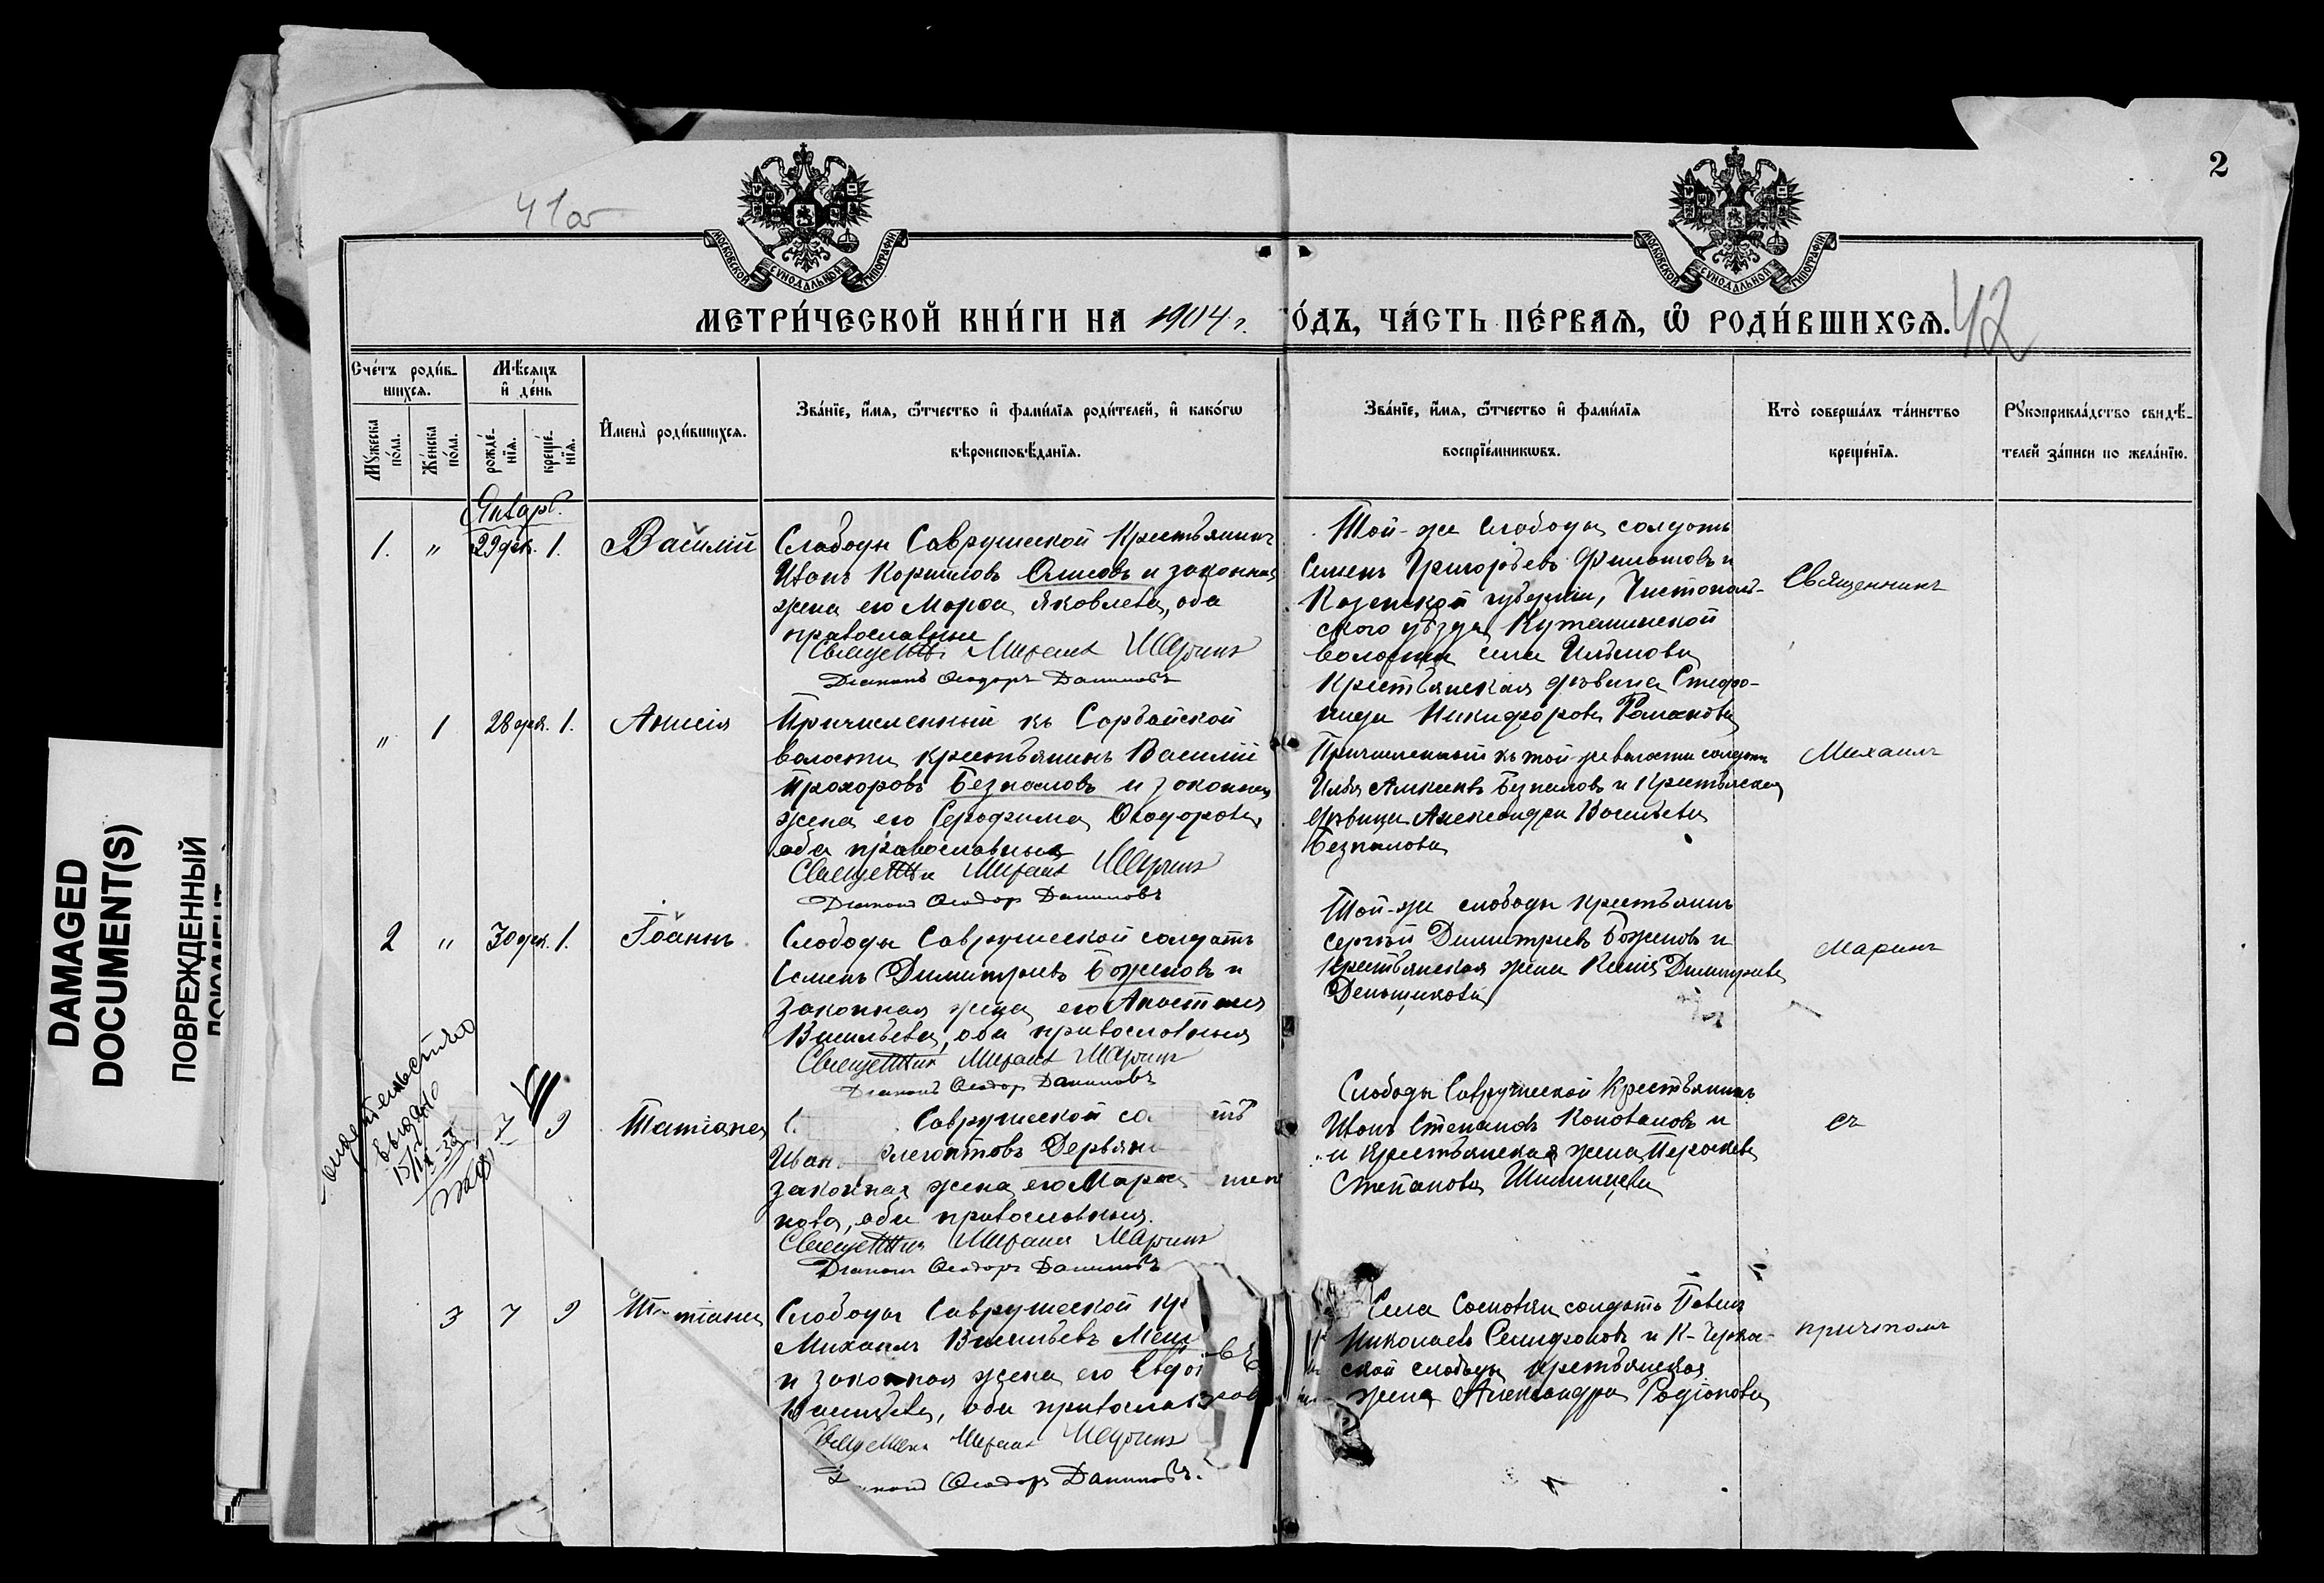 2
41об
МОСКОВСКОЙ СУНОДАЛЬНОЙ ТИПОГРАФІИ
МОСКОВСКОЙ СУНОДАЛЬНОЙ ТИПОГРАФІИ
МЕТРИ́ЧЕСКОЙ КНИ́ГИ НА 1904 г.
О́ДЪ, ЧА́СТЬ ПЕ́РВАѦ, Ѡ҆ РОДИ́ВШИХСѦ.
42
Сче́тъ роди́в-
шихсѧ.
Мѣ́сѧцъ
и҆ де́нь
Мꙋ́жеска
по́ла.
Же́нска
по́ла.
рожде́-
нїѧ.
креще́-
нїѧ.
И҆мена̀ роди́вшихсѧ.
Зва́нїе, и҆́мѧ, ѻ҆́тчество и҆ фами́лїѧ роди́телей, и҆ како́гѡ
вѣроисповѣ́данїѧ.
Зва́нїе, и҆́мѧ, ѻ҆́тчество и҆ фами́лїѧ
воспрїе́мникѡвъ.
Кто̀ соверша́лъ та́инство
креще́нїѧ.
Рꙋкоприкла́дство свидѣ́-
телей за́писи по жела́нїю.
Январь.
1. " 29 дек. 1. Василій
Слободы Саврушской Крестьянинъ
Иванъ Корниловъ и законная
жена его Марѳа Яковлева, оба
православные
Священникъ Михаилъ Маринъ
Діаконъ Ѳеодоръ Даниловъ
Той-же Слободы солдатъ
Семенъ Григорьевъ Филатовъ и
Казанской губерніи, Чистополь-
ского уѣзда Кутеминской
волости села
Крестьянская дѣвица Стефа-
нида Никифорова Романова
Священникъ
" 1 28 дек. 1. Анисія
Причисленный къ Сарбайской
волости крестьянинъ Василій
Прохоровъ Безпаловъ и законная
жена его Серафима Ѳеодорова,
оба православные
Священникъ Михаилъ Маринъ
Діаконъ Ѳеодоръ Даниловъ
Причисленный къ той же волости солдатъ
Илья Безпаловъ и Крестьянская
дѣвица Александра Васильева
Безпалова
Михаилъ
2 " 30 дек. 1. Іоаннъ
Слободы Саврушской солдатъ
Семенъ Димитріевъ Боженовъ и
законная жена его Анастасія
Васильева, оба православные
Священникъ Михаилъ Маринъ
Діаконъ Ѳеодоръ Даниловъ
Той-же слободы крестьянинъ
Сергѣй Димитріевъ Боженовъ и
крестьянская жена Димитріева
Деньщикова
Маринъ
свидетельство
выдано
7 9 Татіана
Саврушской со тъ
Иван
законная жена его Марѳа
нова, оба православные.
Священникъ Михаилъ Маринъ
Діаконъ Ѳеодоръ Даниловъ
Слободы Саврушской Крестьянинъ
Иванъ Степановъ Коноваловъ и
и Крестьянская жена Параскева
Степанова
съ
3 7 9 Татіана
Слободы Саврушской кр
Михаилъ Васильевъ
и законная жена его Евдо
Васильева, оба православ
Священникъ Михаилъ Маринъ
Діаконъ Ѳеодоръ Даниловъ.
Села солдатъ Павелъ
Николаевъ и К-Черка-
ской слободы крестьянская
жена Александра Родіонова
причтомъ
DAMAGED
DOCUMENT(S)
ПОВРЕЖДЕННЫЙ
ДОКУМЕНТ